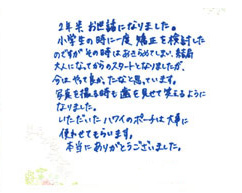 2年半お世話になりました。
小学生の時に一度矯正を検討した
のですがその時はあきらめてしまい、結局
大人になってからのスタートとなりましたが、
今はやって良かったなと思っています。
写真を撮る時も歯を見せて笑えるように
なりました。
いただいたハワイのポーチは大事に
使わせてもらいます。
本当にありがとうございました。